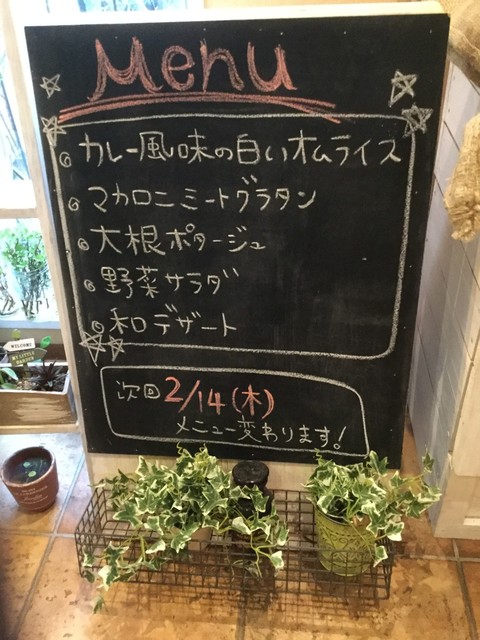 Menu
カレー風味の白いオムライス
マカロニミートグラタン
大根ポタージュ
野菜サラダ
和デザート
次回 2/14(木)
メニュー変わります!
WELCOME
MY LITTLE
GARDEN